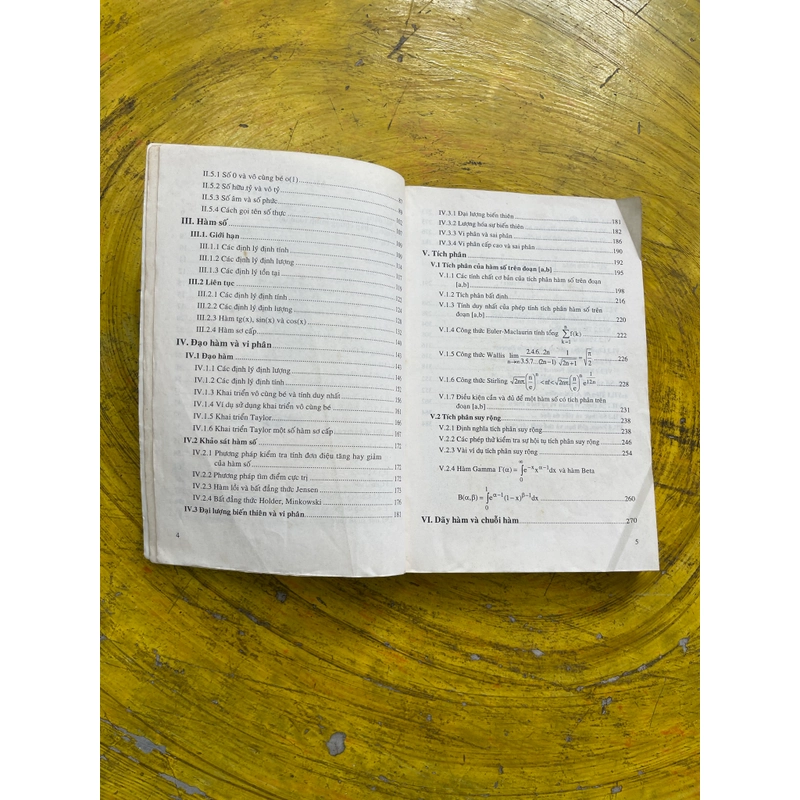 II.5.1 Số 0 và vô cùng bé o(1)
II.5.2 Số hữu tỷ và vô tỷ
II.5.3 Số âm và số phức
II.5.4 Cách gọi tên số thực
III. Hàm số
III.1. Giới hạn
III.1.1 Các định lý định tính
III.1.2 Các định lý định lượng
III.1.3 Các định lý tồn tại
III.2 Liên tục
III.2.1 Các định lý định tính
III.2.2 Các định lý định lượng
III.2.3 Hàm tg(x), sin(x) và cos(x)
III.2.4 Hàm sơ cấp
IV. Đạo hàm và vi phân 141
IV.1 Đạo hàm 141
IV.1.1 Các định lý định lượng 141
IV.1.2 Các định lý định tính
IV.1.3 Khai triển vô cùng bé và tính duy nhất
IV.1.4 Ví dụ sử dụng khai triển vô cùng bé
IV.1.5 Khai triển Taylor 161
IV.1.6 Khai triển Taylor một số hàm sơ cấp 167
IV.2 Khảo sát hàm số 172
IV.2.1 Phương pháp kiểm tra tính đơn điệu tăng hay giảm
của hàm số 172
IV.2.2 Phương pháp tìm điểm cực trị
IV.2.3 Hàm lồi và bất đẳng thức Jensen 175
IV.2.4 Bất đẳng thức Holder, Minkowski 176
IV.3 Đại lượng biến thiên và vi phân 181
4
IV.3.1 Đại lượng biến thiên 181
IV.3.2 Lượng hóa sự biến thiên 182
IV.3.3 Vi phân và sai phân 186
IV.3.4 Vi phân cấp cao và sai phân 190
V. Tích phân 192
V.1 Tích phân của hàm số trên đoạn [a,b] 195
V.1.1 Các tính chất cơ bản của tích phân hàm số trên đoạn
[a,b] 198
V.1.2 Tích phân bất định 216
V.1.3 Tính duy nhất của phép tính tích phân hàm số trên
đoạn [a,b] 220
V.1.4 Công thức Euler-Maclaurin tính tổng ∑_{k=1}^{n} f(k) 222
V.1.5 Công thức Wallis lim_{n→∞} 2.4.6...2n / 3.5.7...(2n−1) 1/√(2n+1) = √(π/2) 226
V.1.6 Công thức Stirling √(2nπ)(n/e)^n < n! < √(2nπ)(n/e)^n e^{1/12n} 228
V.1.7 Điều kiện cần và đủ để một hàm số có tích phân trên
đoạn [a,b] 231
V.2 Tích phân suy rộng 238
V.2.1 Định nghĩa tích phân suy rộng 238
V.2.2 Các phép thử kiểm tra sự hội tụ tích phân suy rộng 246
V.2.3 Vài ví dụ tích phân suy rộng 254
V.2.4 Hàm Gamma Γ(α) = ∫_0^∞ e^{−x} x^{α−1} dx và hàm Beta
B(α,β) = ∫_0^1 e^{α−1} (1−x)^{β−1} dx 260
VI. Dãy hàm và chuỗi hàm 270
5